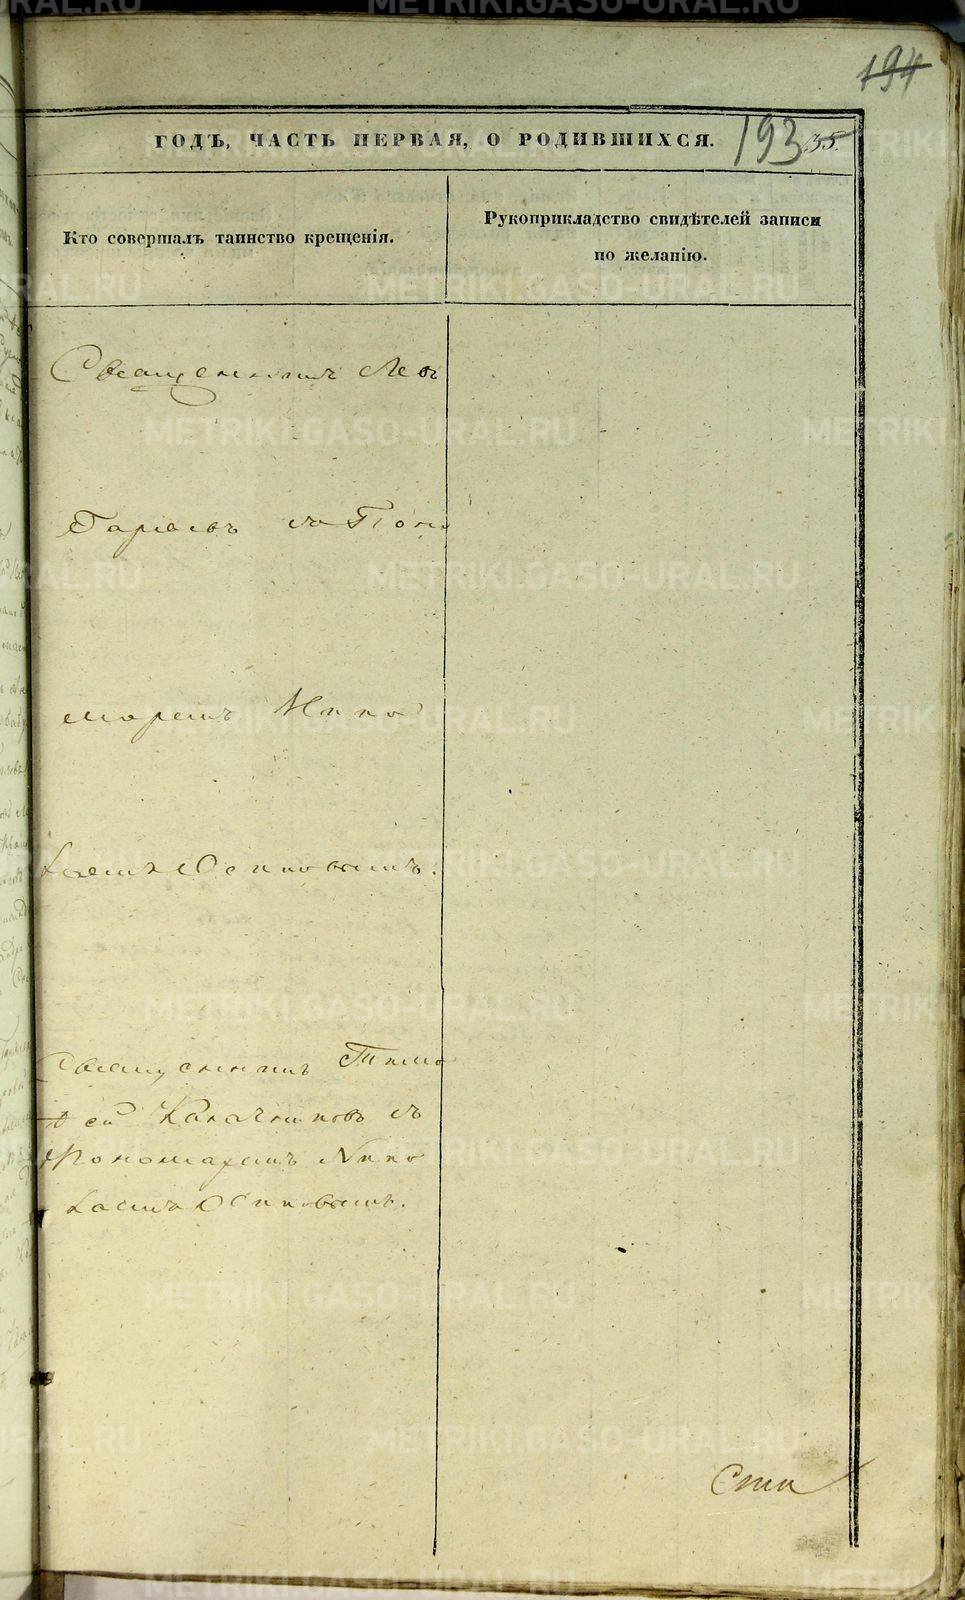 194
ГОДЪ, ЧАСТЬ ПЕРВАЯ, О РОДИВШИХСЯ.
193
35.
Кто совершалъ таинство крещенія.
Рукоприкладство свидѣтелей записи
по желанію.
Священникъ Левъ
съ Поно
маремъ Нико
лаемъ Осиповымъ.
Священникъ Тимо
ѳей Калачниковъ съ
Пономаремъ Нико
лаемъ Осиповымъ.
METRIKI.GASO-URAL.RU